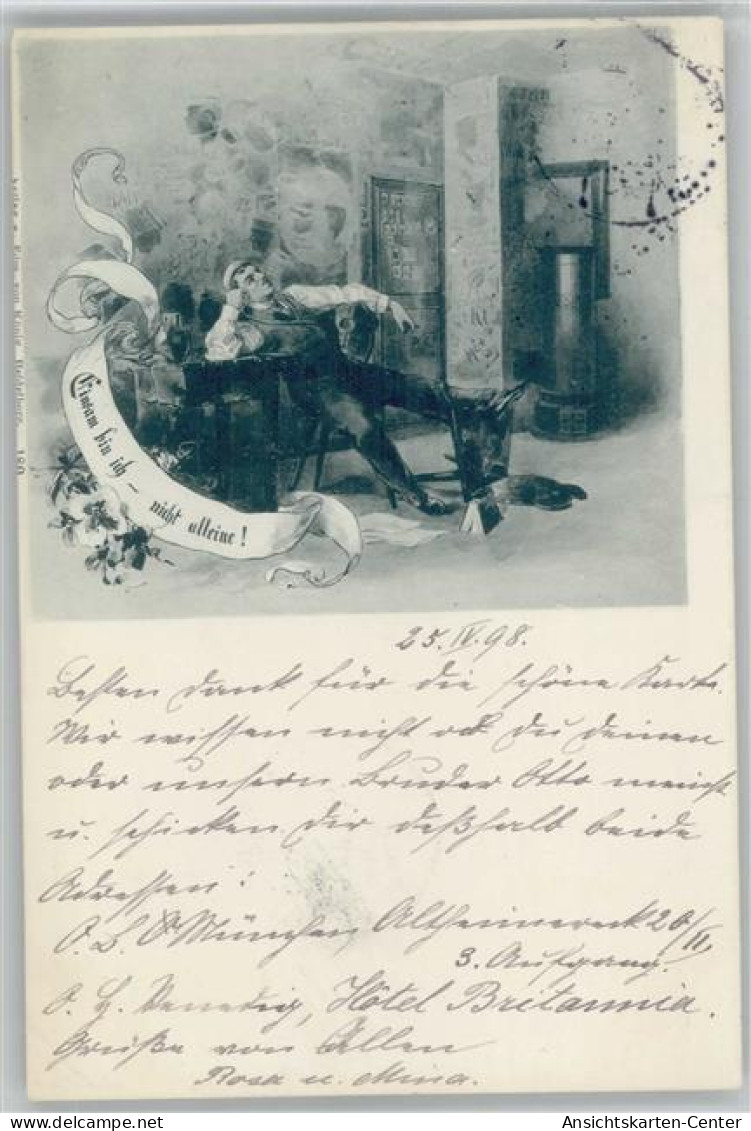 Einsam bin ich –
nicht alleine!
25. IV. 98.
Besten Dank für die schöne Karte.
Wir wissen nicht ob Du Deinen
oder unsern Bruder Otto meinst
u. schicken Dir deßhalb beide
Adressen:
O. L. München, Altheimereck 20/II,
3. Aufgang.
O. H. Venedig, Hôtel Britannia.
Grüße von Allen
Rosa u. Mina.
Ansichtskarten-Center